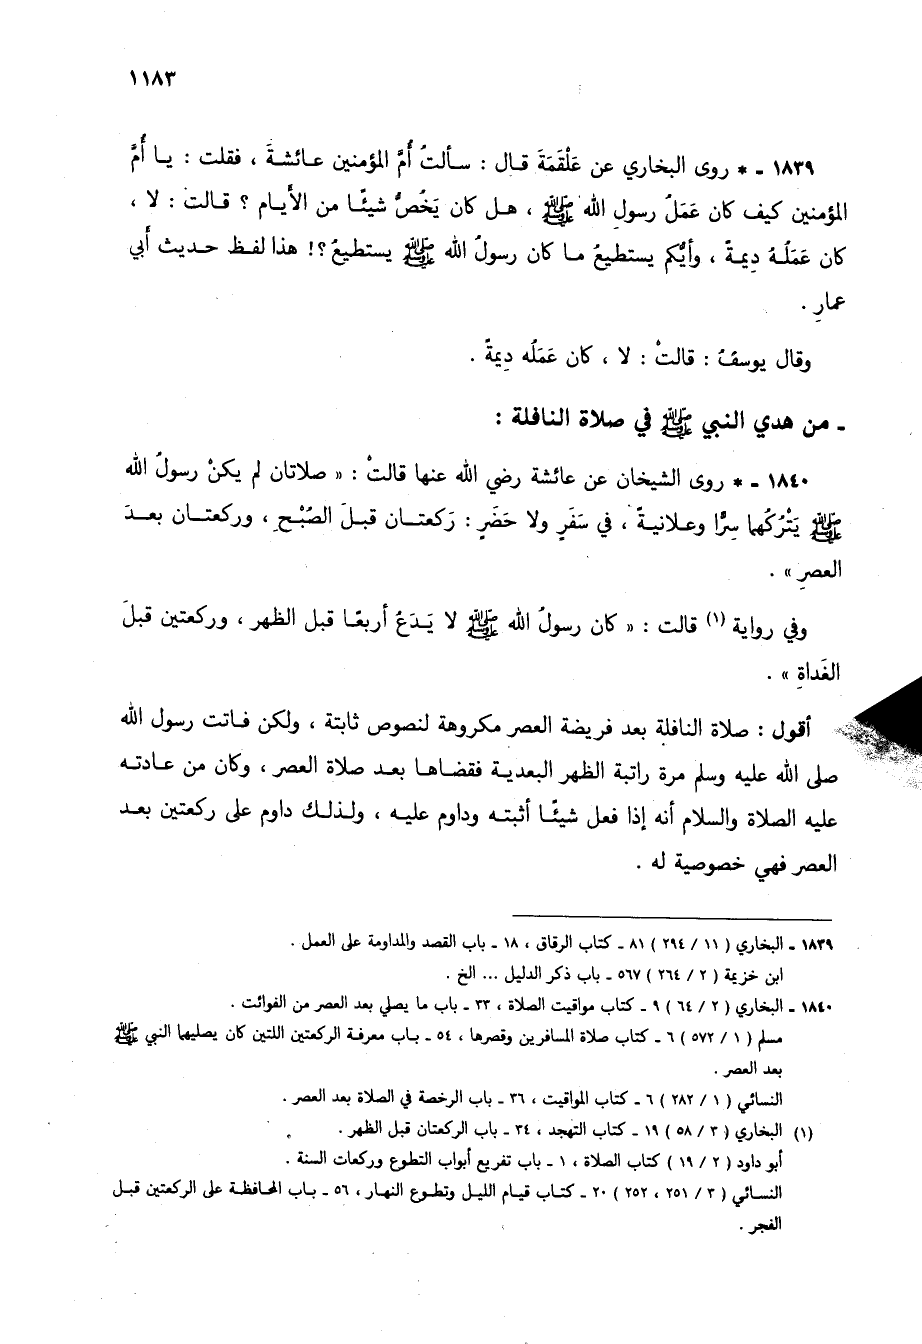 ١١٨٣
١٨٣٩ - * روى البخاري عن عَلْقَمَةَ قال : سألتُ أُمَّ المؤمنين عائشةَ ، فقلت : يا أُمَّ
المؤمنين كيف كان عَمَلُ رسولِ الله ﷺ ، هل كان يَخُصُّ شيئًا من الأيام ؟ قالت : لا ،
كان عَمَلُهُ دِيمةً ، وأيُّكم يستطيعُ ما كان رسولُ الله ﷺ يستطيعُ ؟! هذا لفظ حديث أبي
عمارِ .
وقال يوسفُ : قالتْ : لا ، كان عَمَلُه دِيمةً .
- من هدي النبي ﷺ في صلاة النافلة :
١٨٤٠ - * روى الشيخان عن عائشة رضي الله عنها قالتْ : « صلاتان لم يكنْ رسولُ الله
ﷺ يَتْرُكُهما سِرًّا وعلانيةً ، في سَفَرٍ ولا حَضَرٍ : رَكعتان قبلَ الصُبْحِ ، وركعتان بعدَ
العصرِ » .
وفي رواية (١) قالت : « كان رسولُ الله ﷺ لا يَدَعُ أربعًا قبل الظهر ، وركعتين قبلَ
الغَداةِ » .
أقول : صلاة النافلة بعد فريضة العصر مكروهة لنصوص ثابتة ، ولكن فاتت رسول الله
صلى الله عليه وسلم مرة راتبة الظهر البعدية فقضاها بعد صلاة العصر ، وكان من عادته
عليه الصلاة والسلام أنه إذا فعل شيئًا أثبته وداوم عليه ، ولذلك داوم على ركعتين بعد
العصر فهي خصوصية له .
١٨٣٩ - البخاري ( ١١ / ٢٩٤ ) ٨١ - كتاب الرقاق ، ١٨ - باب القصد والمداومة على العمل .
ابن خزيمة ( ٢ / ٢٦٤ ) ٥٦٧ - باب ذكر الدليل ... الخ .
١٨٤٠ - البخاري ( ٢ / ٦٤ ) ٩ - كتاب مواقيت الصلاة ، ٣٣ - باب ما يصلي بعد العصر من الفوائت .
مسلم ( ١ / ٥٧٢ ) ٦ - كتاب صلاة المسافرين وقصرها ، ٥٤ - باب معرفة الركعتين اللتين كان يصليهما النبي ﷺ
بعد العصر .
النسائي ( ١ / ٢٨٢ ) ٦ - كتاب المواقيت ، ٣٦ - باب الرخصة في الصلاة بعد العصر .
(١) البخاري ( ٣ / ٥٨ ) ١٩ - كتاب التهجد ، ٣٤ - باب الركعتان قبل الظهر .
أبو داود ( ٢ / ١٩ ) كتاب الصلاة ، ١ - باب تفريع أبواب التطوع وركعات السنة .
النسائي ( ٣ / ٢٥١ ، ٢٥٢ ) ٢٠ - كتاب قيام الليل وتطوع النهار ، ٥٦ - باب المحافظة على الركعتين قبل
الفجر .